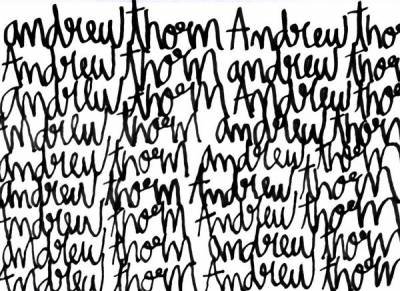 andrew thorn Andrew tho
Andrew thorn andrew tho
andrew thorn Andrew tho
andrew thorn andrew thorn
andrew thorn andrew thorn
andrew thorn Andrew thorn
andrew thorn Andrew thorn
andrew thorn andrew thorn
Andrew thorn Andrew thorn